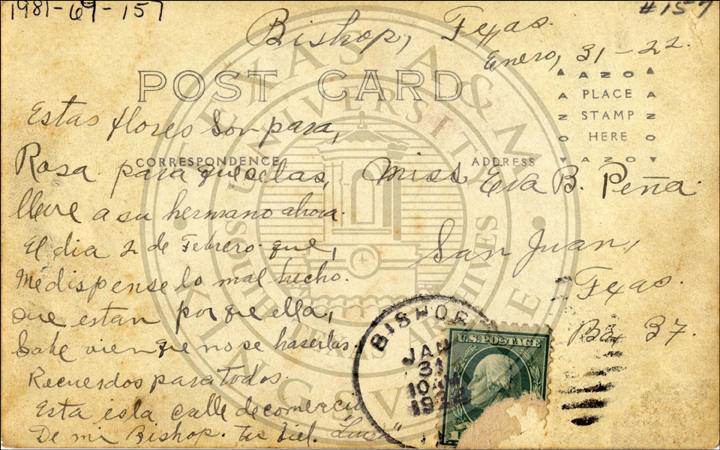 1981-69-157
#157
Bishop, Texas.
Enero, 31-22.
POST CARD
AZO
PLACE
STAMP
HERE
AZO
CORRESPONDENCE
ADDRESS
Estas flores son para,
Rosa para que selas,
lleve a su hermano ahora.
El dia 2 de Febrero que,
Me dispense lo mal hecho.
que estan porque ella,
Sabe vien que no se haserlas.
Recuerdos para todos.
Esta esla calle de comercio
De mi Bishop. tu fiel.
Miss Eva B. Peña.
San Juan,
Texas.
Bx 37.
BISHOP
JAN
31
10 AM
U.S. POSTAGE
TEXAS A&M UNIVERSITY
KINGSVILLE
SOUTH TEXAS ARCHIVES